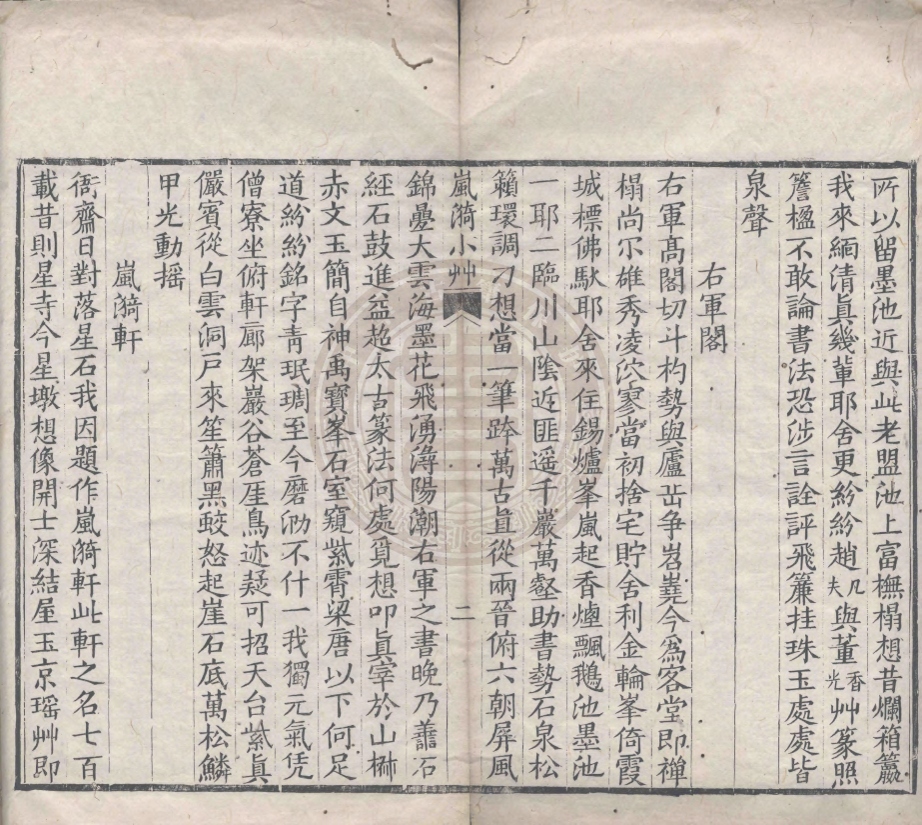 所以留墨池近與此老盟池上富橅榻想昔爛箱籯
我來緬清眞幾輩耶舍更紛紛趙凡夫與董香光艸篆照
簷楹不敢論書法恐涉言詮評飛簾挂珠玉處處皆
泉聲
右軍閣
右軍髙閣切斗杓勢與廬岳争岧嶤今爲客堂即禪
榻尚尒雄秀凌泬寥當初捨宅貯舍利金輪峯倚霞
城標佛馱耶舍來住錫爐峯嵐起香爐飄鵝池墨池
一耶二臨川山陰近匪遥千巖萬壑助書勢石泉松
籟環調刁想當一筆跨萬古眞從兩晉俯六朝屏風
嵐漪小艸 二
錦疊大雲海墨花飛湧潯陽潮右軍之書晚乃善石
經石鼓進益超太古篆法何處覓想叩眞宰於山椒
赤文玉簡自神禹寶峯石室窺紫霄梁唐以下何足
道紛紛銘字靑珉琱至今磨泐不什一我獨元氣凭
僧寮坐俯軒廊架巖谷蒼厓鳥迹疑可招天台紫眞
儼賓從白雲洞戶來笙簫黑蛟怒起崖石底萬松鱗
甲光動摇
嵐漪軒
衙齋日對落星石我因題作嵐漪軒此軒之名七百
載昔則星寺今星墩想像開士深結屋玉京瑶艸即